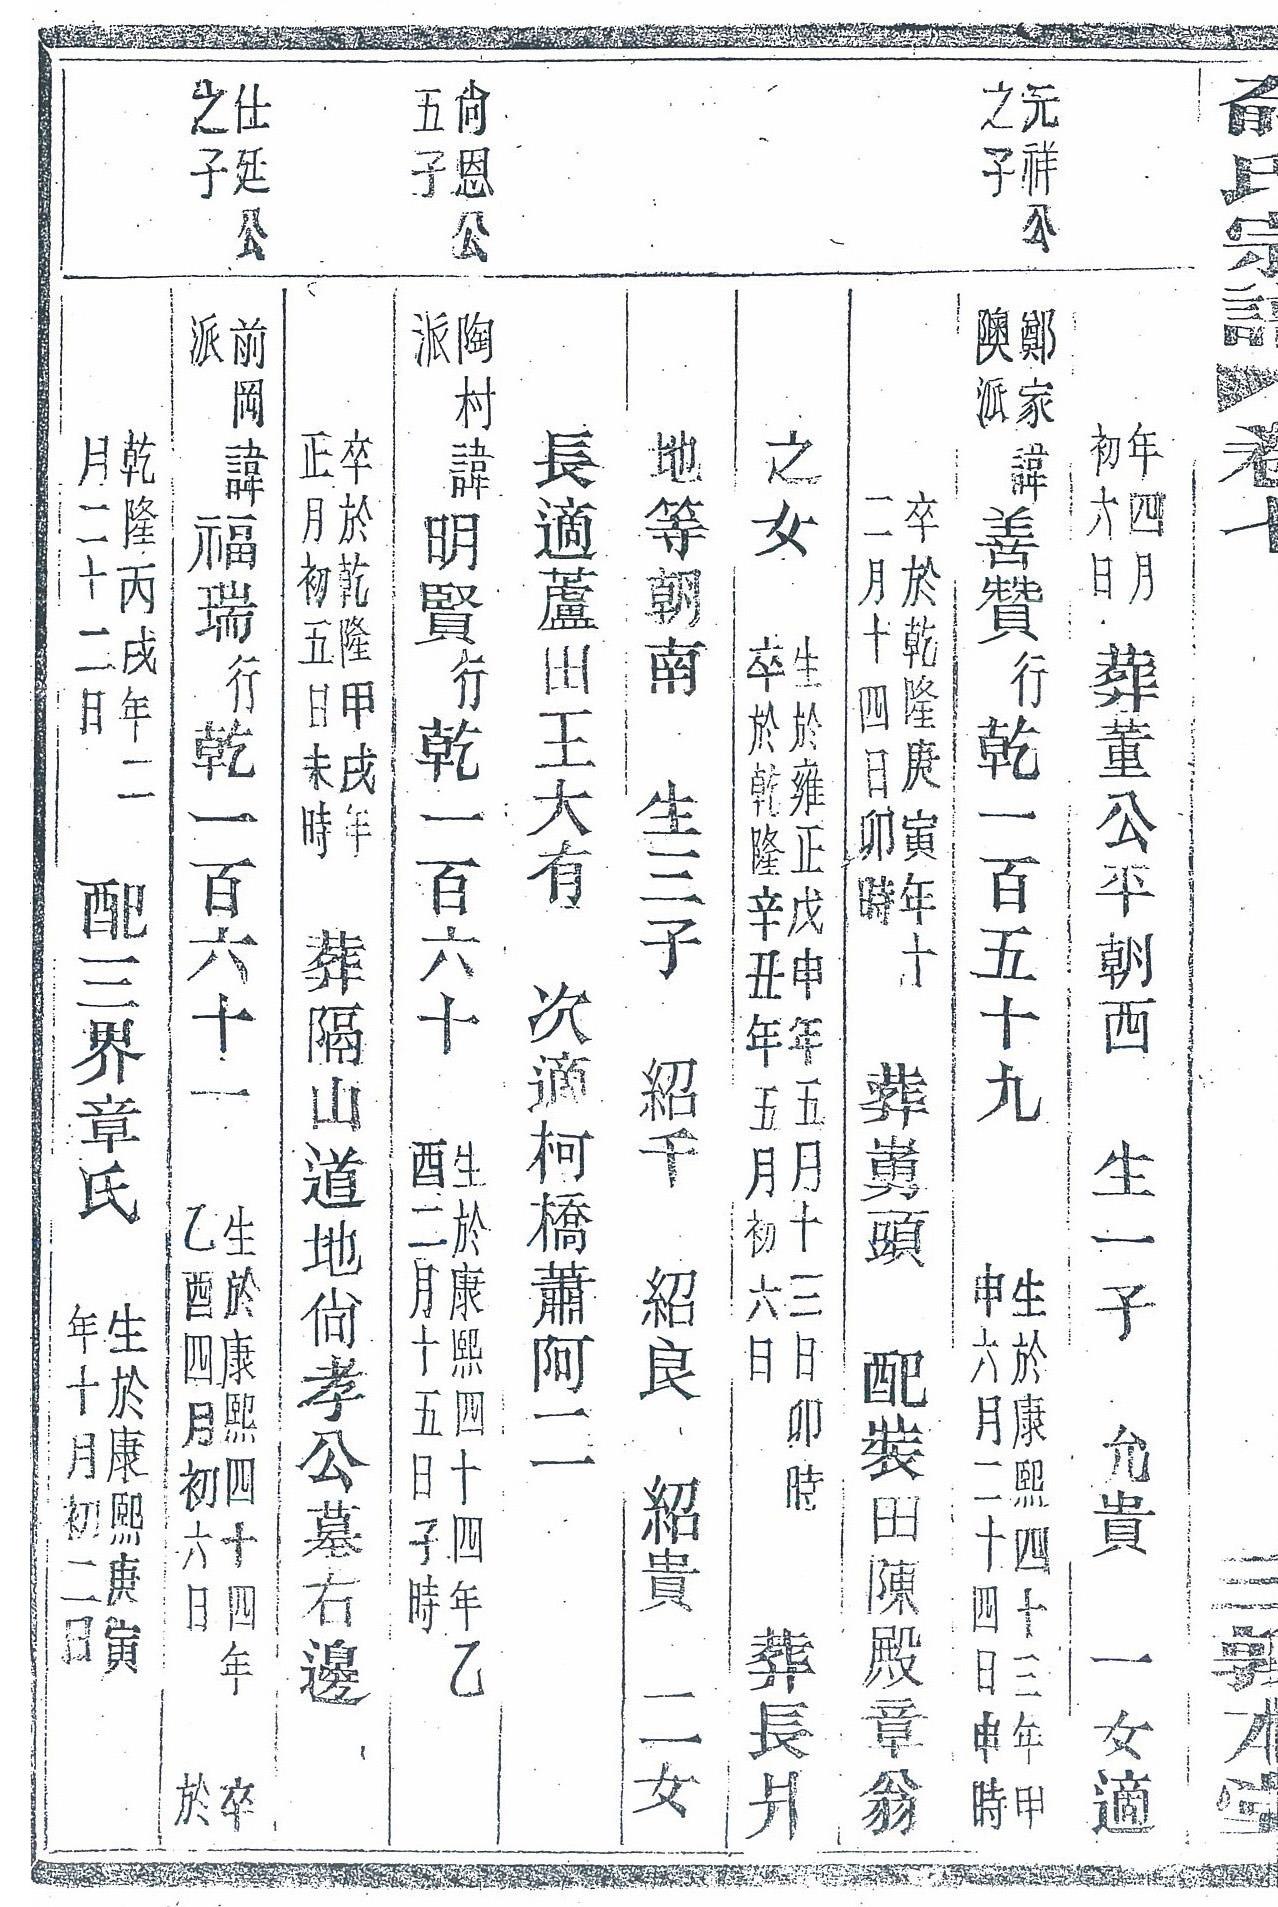 俞氏宗譜 卷十 三 敦本堂
年四月
初六日 葬董公平朝西 生一子 允貴 一女適
元祥公
之子
鄭家
陝派 諱善贊行乾一百五十九 生於康熙四十三年甲
申六月二十四日申時
卒於乾隆庚寅年十
二月十四日卯時 葬嵩頭 配裝田陳殿章翁
之女 生於雍正戊申年五月十三日卯時
卒於乾隆辛丑年五月初六日 葬長爿
地等朝南 生三子 紹千 紹良 紹貴 二女
長適蘆田王大有 次適柯橋蕭阿二
尙恩公
五子
陶村
派 諱明賢行乾一百六十 生於康熙四十四年乙
酉二月十五日子時
卒於乾隆甲戌年
正月初五日未時 葬隔山道地尙孝公墓右邊
仕廷公
之子
前岡
派 諱福瑞行乾一百六十一 生於康熙四十四年 卒
乙酉四月初六日 於
乾隆丙戌年二
月二十二日 配三界章氏 生於康熙庚寅
年十月初二日